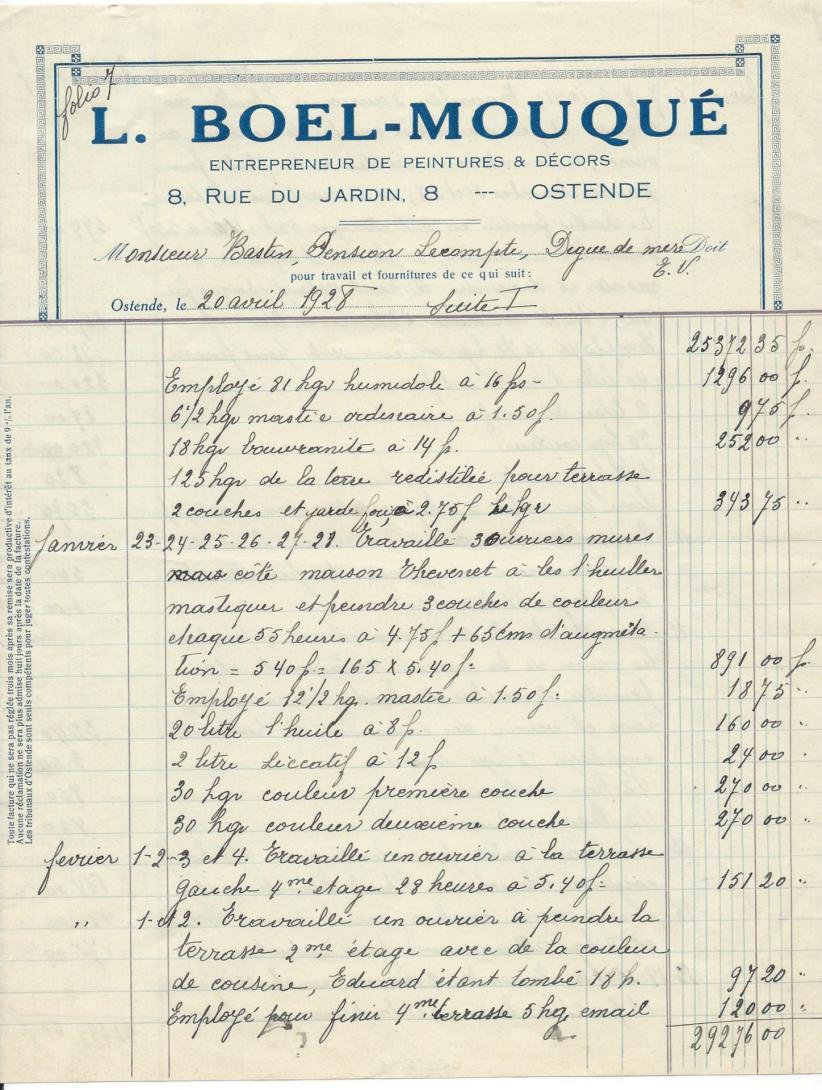 folio 7
L. BOEL-MOUQUÉ
ENTREPRENEUR DE PEINTURES & DÉCORS
8, RUE DU JARDIN, 8 --- OSTENDE
Monsieur Bastin, Pension Lecompte, Digue de mere Doit
E. V.
pour travail et fournitures de ce qui suit:
Ostende, le 20 avril 1928 Suite I
25372 35 f.
Employé 81 kgr humidole à 16 fs - 1296 00 f.
6 1/2 kgr mastic ordinaire à 1.50 f. 9 75 f.
18 kgr bouvranite à 14 f. 252 00 "
125 kgr de la terre redistilée pour terrasse
2 couches et garde fou à 2.75 f le kgr 343 75 "
Janvier 23-24-25-26-27-28. Travaillé 3 ouvriers mures
côté maison Thevenet à les l'huiller
mastiquer et peindre 3 couches de couleur
chaque 55 heures à 4.75 f + 65 cms d'augméta-
tion = 540 f = 165 x 5.40 f = 891 00 f.
Employé 12 1/2 kg. mastic à 1.50 f = 18 75 "
20 litre l'huile à 8 f. 160 00 "
2 litre siccatif à 12 f 24 00 "
30 kgr couleur première couche 270 00 "
30 kgr couleur deuxième couche 270 00 "
fevrier 1-2-3 et 4. Travaillé un ouvrier à la terrasse
gauche 4me etage 28 heures à 5.40 f = 151 20 "
" 1-et 2. Travaillé un ouvrier à peindre la
terrasse 2me étage avec de la couleur
de cousine, Eduard étant tombé 18 h. 97 20 "
Employé pour finir 4me terrasse 5 kg email 120 00 "
29276 00
Toute facture qui ne sera pas réglée trois mois après sa remise sera productive d'intérêt au taux de 9 % l'an.
Aucune réclamation ne sera plus admise huit jours après la date de la facture.
Les tribunaux d'Ostende sont seuls compétents pour juger toutes contestations.